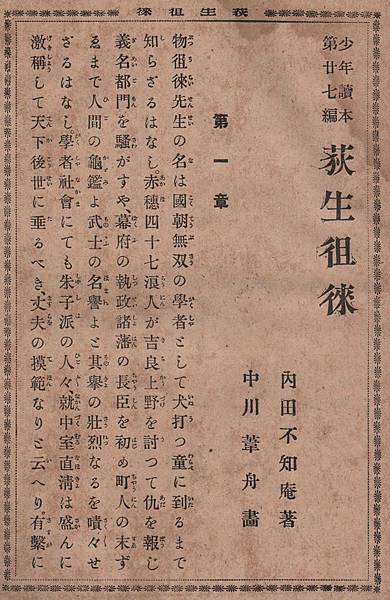 荻生徂徠
少年讀本
第廿七編
荻生徂徠
內田不知庵著
中川葦舟畵
第一章
物徂徠先生の名は國朝無双の學者として犬打つ童に到るまで
知らざるはなし。赤穗四十七浪人が吉良上野を討つて仇を報じ
義名都門を騷がすや幕府の執政諸藩の長臣を初め町人の末ず
ゑまで人間の龜鑑よ武士の名譽よと其擧の壯烈なるを嘖々せ
ざるはなし。學者社會にても朱子派の人々就中室直淸は盛んに
激稱して天下後世に垂るべき丈夫の摸範なりと云へり。有繫に